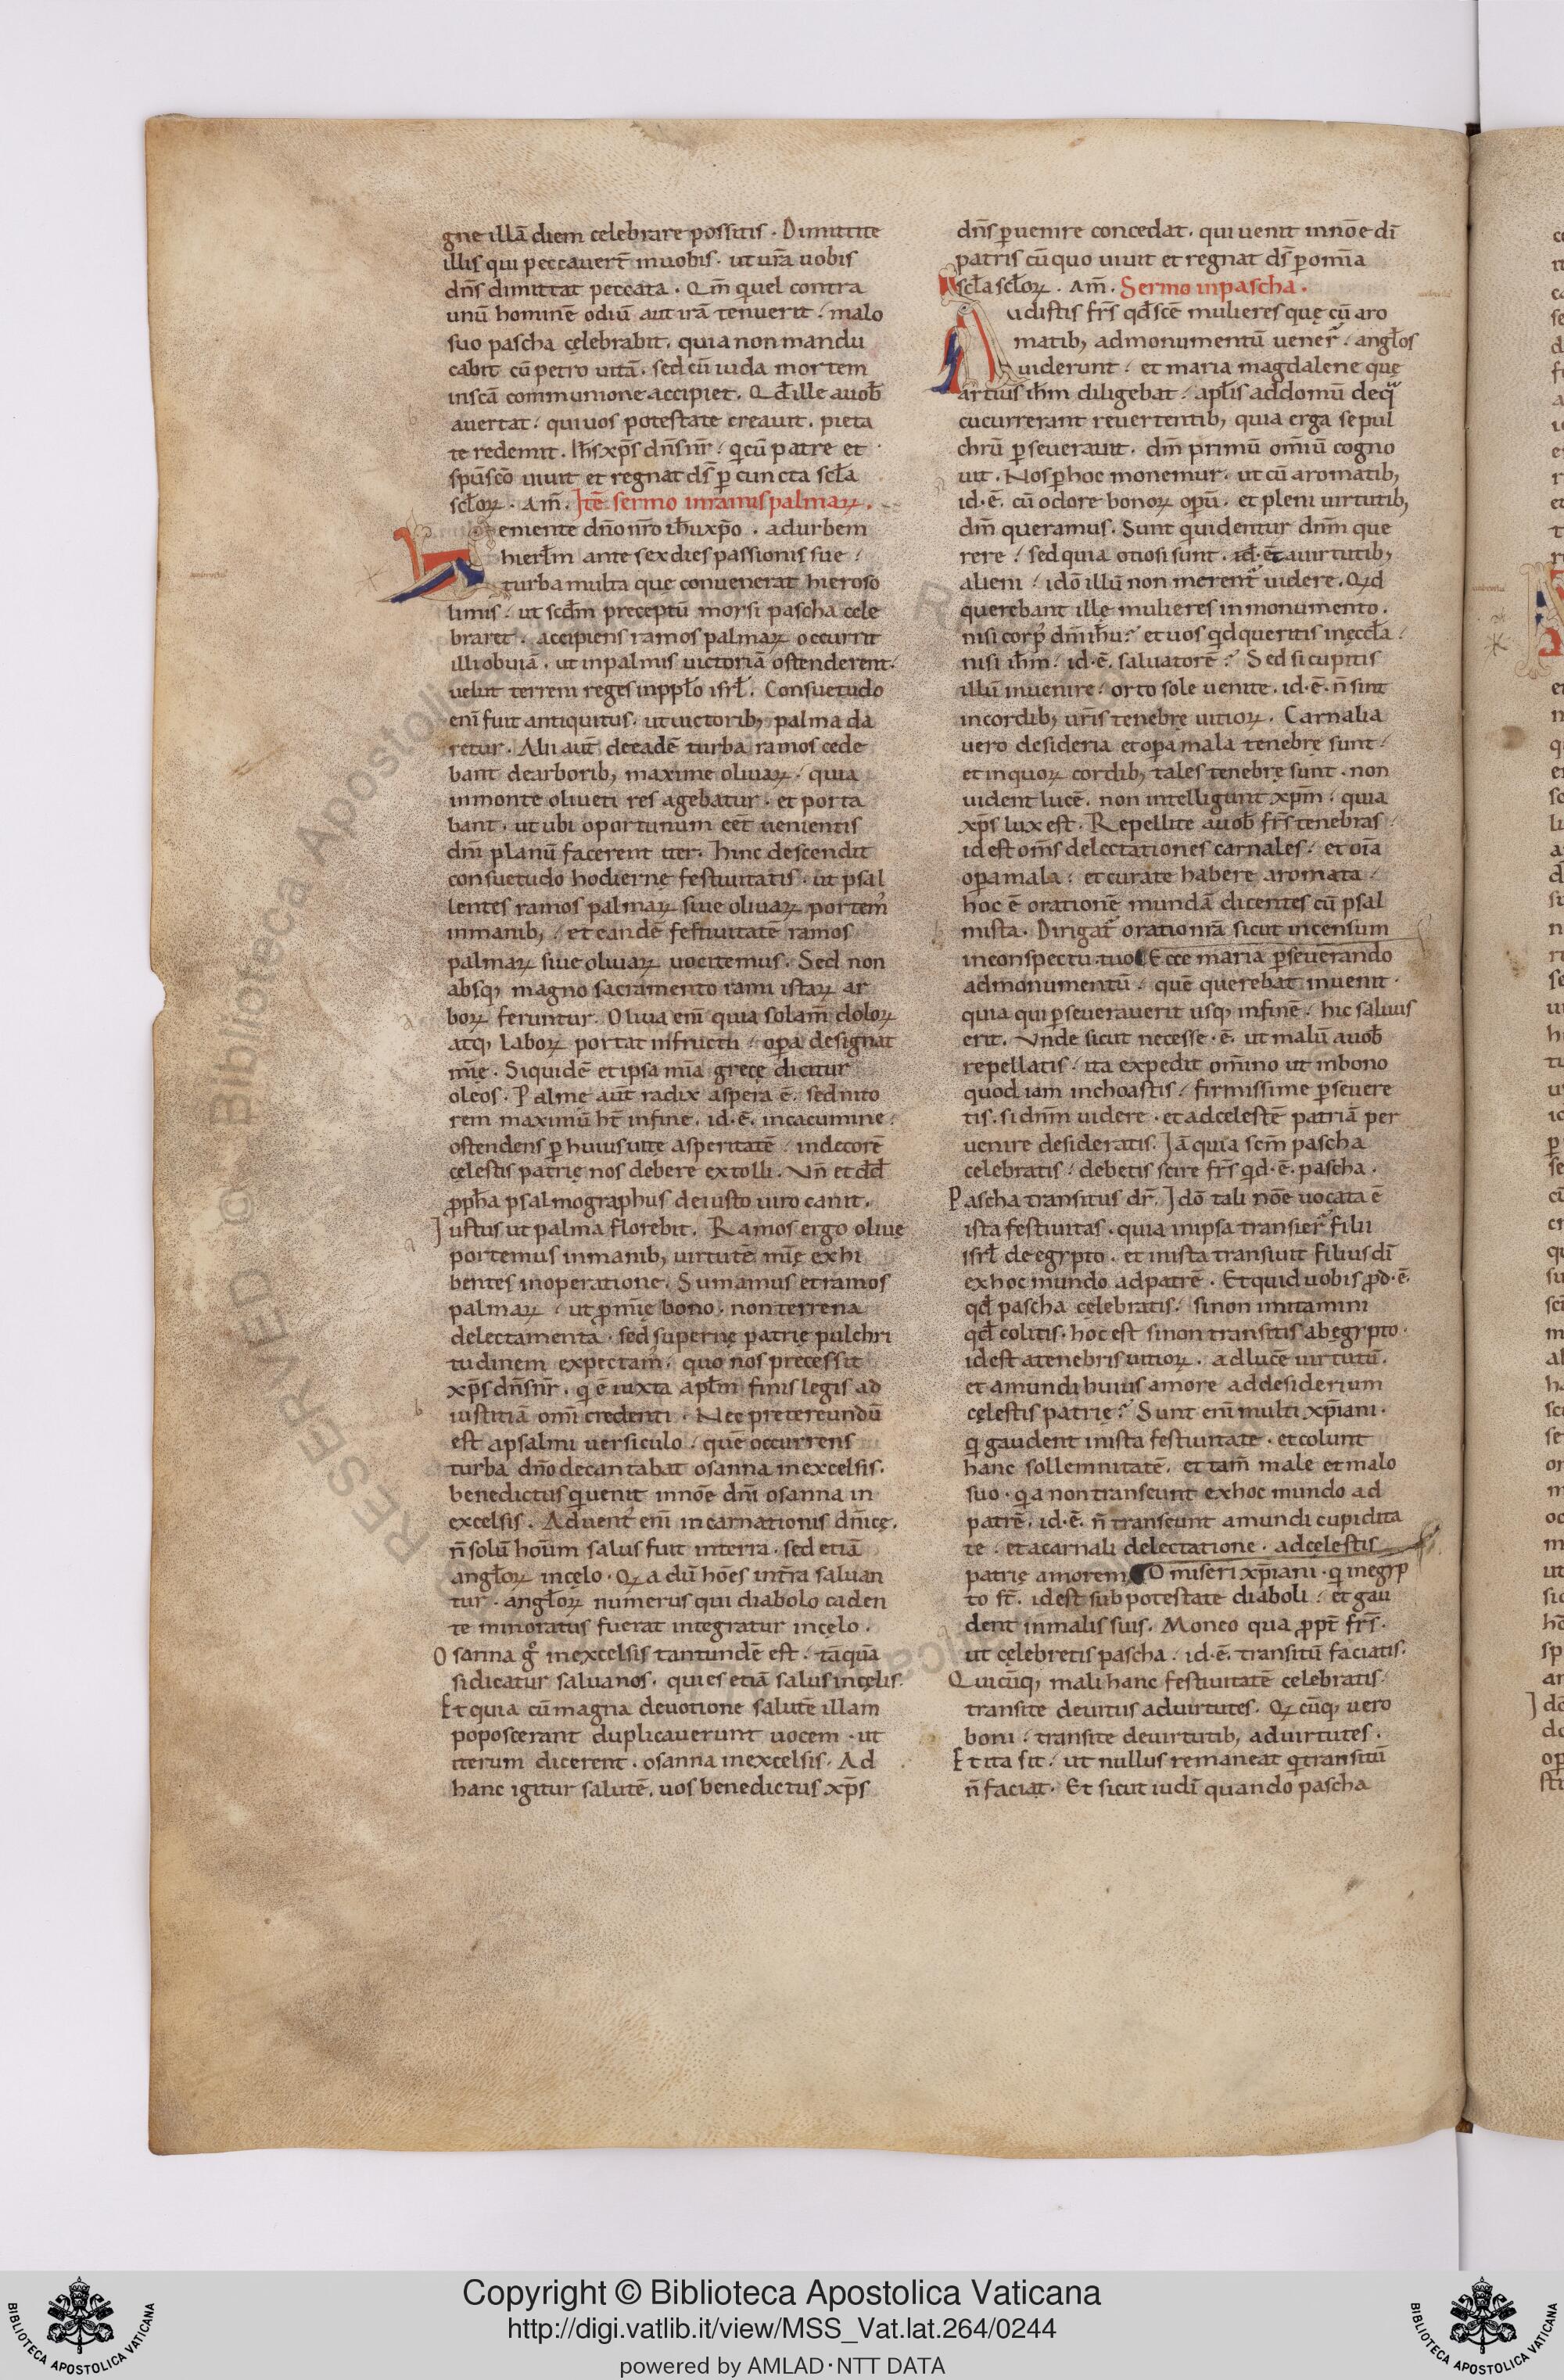 gne illā diem celebrare possitis. Dimittite
illis qui peccauerт̄ inuobis. ut ur̄a uobis
dn̄s dimittat peccata. Qm̄ quel contra
unū hominē odiū aut irā tenuerit. malo
suo pascha cęlebrabit. quia non mandu
cabit cū petro uitā. sed cū iuda mortem
inscā communione accipiet. Qđ ille auob̄
auertat. qui uos potestate creauit. pieta
te redemit. Ihs̄ xp̄s dn̄s nr̄. q cū patre et
spū scō uiuit et regnat ds̄ p̱ cuncta scła
scłoꝝ. Am̄. Itē sermo inramis palmaꝝ.
emente dn̄o nr̄o ih̄u xp̄o. ad urbem
hierłm ante sex dies passionis sue
turba multa que conuenerat hieroso
limis. ut scđm preceptū morsi pascha cele
braret. accipiens ramos palmaꝝ occurrit
illi obuiā. ut inpalmis uictoriā ostenderent.
uelut terreni reges inppło isrł. Consuetudo
eni fuit antiquitus. ut uictorib; palma da
retur. Alii aut̄ de eadē turba ramos cede
bant dearborib; maxime oliuaꝝ. quia
inmonte oliueti res agebatur. et porta
bant. ut ubi oportunum eēt uenientis
dn̄i planū facerent iter. Hinc descendit
consuetudo hodiernę festiuitatis. ut psal
lentes ramos palmaꝝ siue oliuaꝝ portem᾽
inmanib; et eandē festiuitatē ramos
palmaꝝ siue oliuaꝝ uocitemus. Sed non
absq; magno sacramento rami istaꝝ ar
boꝝ feruntur. Oliua enī quia solam̄ doloꝝ
atq; laboꝝ portat infructu. opa designat
mīę. Siquidē et ipsa mīa grece dicitur
oleos. Palme aut̄ radix aspera ē. sed nito
rem maximū ht̄ infine. id.ē. incacumine.
ostendens p̱ huius uite asperitatē indecorē
cęlestis patrię nos debere extolli. Vn̄ et dđ
ꝓph̄a psalmographus de iusto uiro canit.
Iustus ut palma florebit. Ramos ergo oliuę
portemus inmanib; uirtutē mīę exhi
bentes inoperatione. Sumamus et ramos
palmaꝝ ut ꝓ mīę bono. non terrena
delectamenta. sed supernę patrię pulchri
tudinem expectam᾽. quo nos precessit
xp̄s dn̄s nr̄. q ē iuxta apłm finis legis ad
iustitiā omī credenti. Nec pretereundū
est a psalmi uersiculo. quē occurrens
turba dn̄o decantabat osanna inexcelsis.
benedictus q uenit innōe dn̄i osanna in
excelsis. Aduent᾽ enī incarnationis dn̄icę.
n̄ solū hoīum salus fuit interra. sed etiā
angłoꝝ incęlo. Qꝛ a dū hoēs intr̄a saluan
tur. angłoꝝ numerus qui diabolo caden
te minoratus fuerat integratur incęlo.
Osanna g̊ inexcelsis tantundē est. tāquā
sidicatur saluanos. qui es etiā salus incęlis.
Et quia cū magna deuotione salutē illam
poposcerant duplicauerunt uocem. ut
iterum dicerent. osanna inexcelsis. Ad
hanc igitur salutē. uos benedictus xp̄s
dn̄s p̱uenire concedat. qui uenit innōe dī
patris cū quo uiuit et regnat ds̄ p̱ omīa
scła scłoꝝ. Am̄. Sermo inpascha.
Audistis frs̄ qđ scē mulieres quę cū aro
matib; admonumentū uener᾽. angłos
uiderunt. et maria magdalene quę
artius ih̄m diligebat. apłis addomū
cucurrerant reuertentib; quia erga sepul
chrū p̱seuerauit. dm̄ primū omīū cogno
uit. Nos p̱hoc monemur. ut cū aromatib;
id.ē. cū odore bonoꝝ opū. et pleni uirtutib;
dm̄ queramus. Sunt qui dentur dn̄m que
rere. sed quia otiosi sunt. id.ēt auirtutib;
alieni. idō illū non merent᾽ uidere. Qꝛd
querebant ille mulieres in monumento.
nisi corp᾽ dn̄i ih̄u? et uos qd queritis inęccła.
nisi ih̄m. id.ē. saluatorē? Sed si cupitis
illū inuenire. orto sole uenite. id.ē. n̄ sint
incordib; ur̄is tenebrę uitioꝝ. Carnalia
uero desideria et opa mala tenebrę sunt.
et inquoꝝ cordib; tales tenebrę sunt. non
uident lucē. non intelligunt xp̄m. quia
xp̄s lux est. Repellite auob̄ frs̄ tenebras
id est om̄s delectationes carnales. et oīa
opa mala. et curate habere aromata.
hoc ē orationē mundā dicentes cū psal
mista. Dirigat᾽ oratio mā sicut incensum
inconspectu tuo. Ecce maria p̱seuerando
admonumentū. quē querebat inuenit.
quia qui p̱seuerauerit usq; infinē. hic saluus
erit. Vnde sicut necesse.ē. ut malū auob̄
repellatis. ita expedit om̄ino ut inbono
quod iam inchoastis. firmissime p̱seuere
tis. si dn̄m uidere. et adcelestē patriā per
uenire desideratis. Iā quia scm̄ pascha
celebratis. debetis scire frs̄ qd.ē. pascha.
Pascha transitus dr̄. Idō tali nōe uocata ē
ista festiuitas. quia inipsa transier᾽ filii
isrł de egypto. et inista transiuit filius dī
exhoc mundo adpatrē. Et quid uobis ꝓd.ē.
qđ pascha cęlebratis. si non imitamini
qđ colitis. hoc est si non transitis ab egypto.
id est a tenebris uitioꝝ. ad lucē uirtutū.
et amundi huius amore addesiderium
cęlestis patrię? Sunt enī multi xp̄iani.
q gaudent inista festiuitate. et colunt
hanc sollemnitatē. et tam̄ male et malo
suo. qa non transeunt exhoc mundo ad
patrē. id.ē. n̄ transeunt amundi cupidita
te. et acarnali delectatione. adcęlestis
patrię amorem. O miseri xp̄iani. q inegyp
to st̄. id est sub potestate diaboli. et gau
dent inmalis suis. Moneo qua ꝓpt̄ frs̄.
ut cęlebretis pascha. id.ē. transitū faciatis.
Quicūq; mali hanc festiuitatē celebratis.
transite deuitiis aduirtutes. Qꝛ cūq; uero
boni. transite deuirtutib; aduirtutes.
Et ita sit. ut nullus remaneat q transitū
n̄ faciat. Et sicut iudī quando pascha
RESERVED © Biblioteca Apostolica
Copyright © Biblioteca Apostolica Vaticana
http://digi.vatlib.it/view/MSS_Vat.lat.264/0244
powered by AMLAD·NTT DATA
BIBLIOTECA APOSTOLICA VATICANA
BIBLIOTECA APOSTOLICA VATICANA